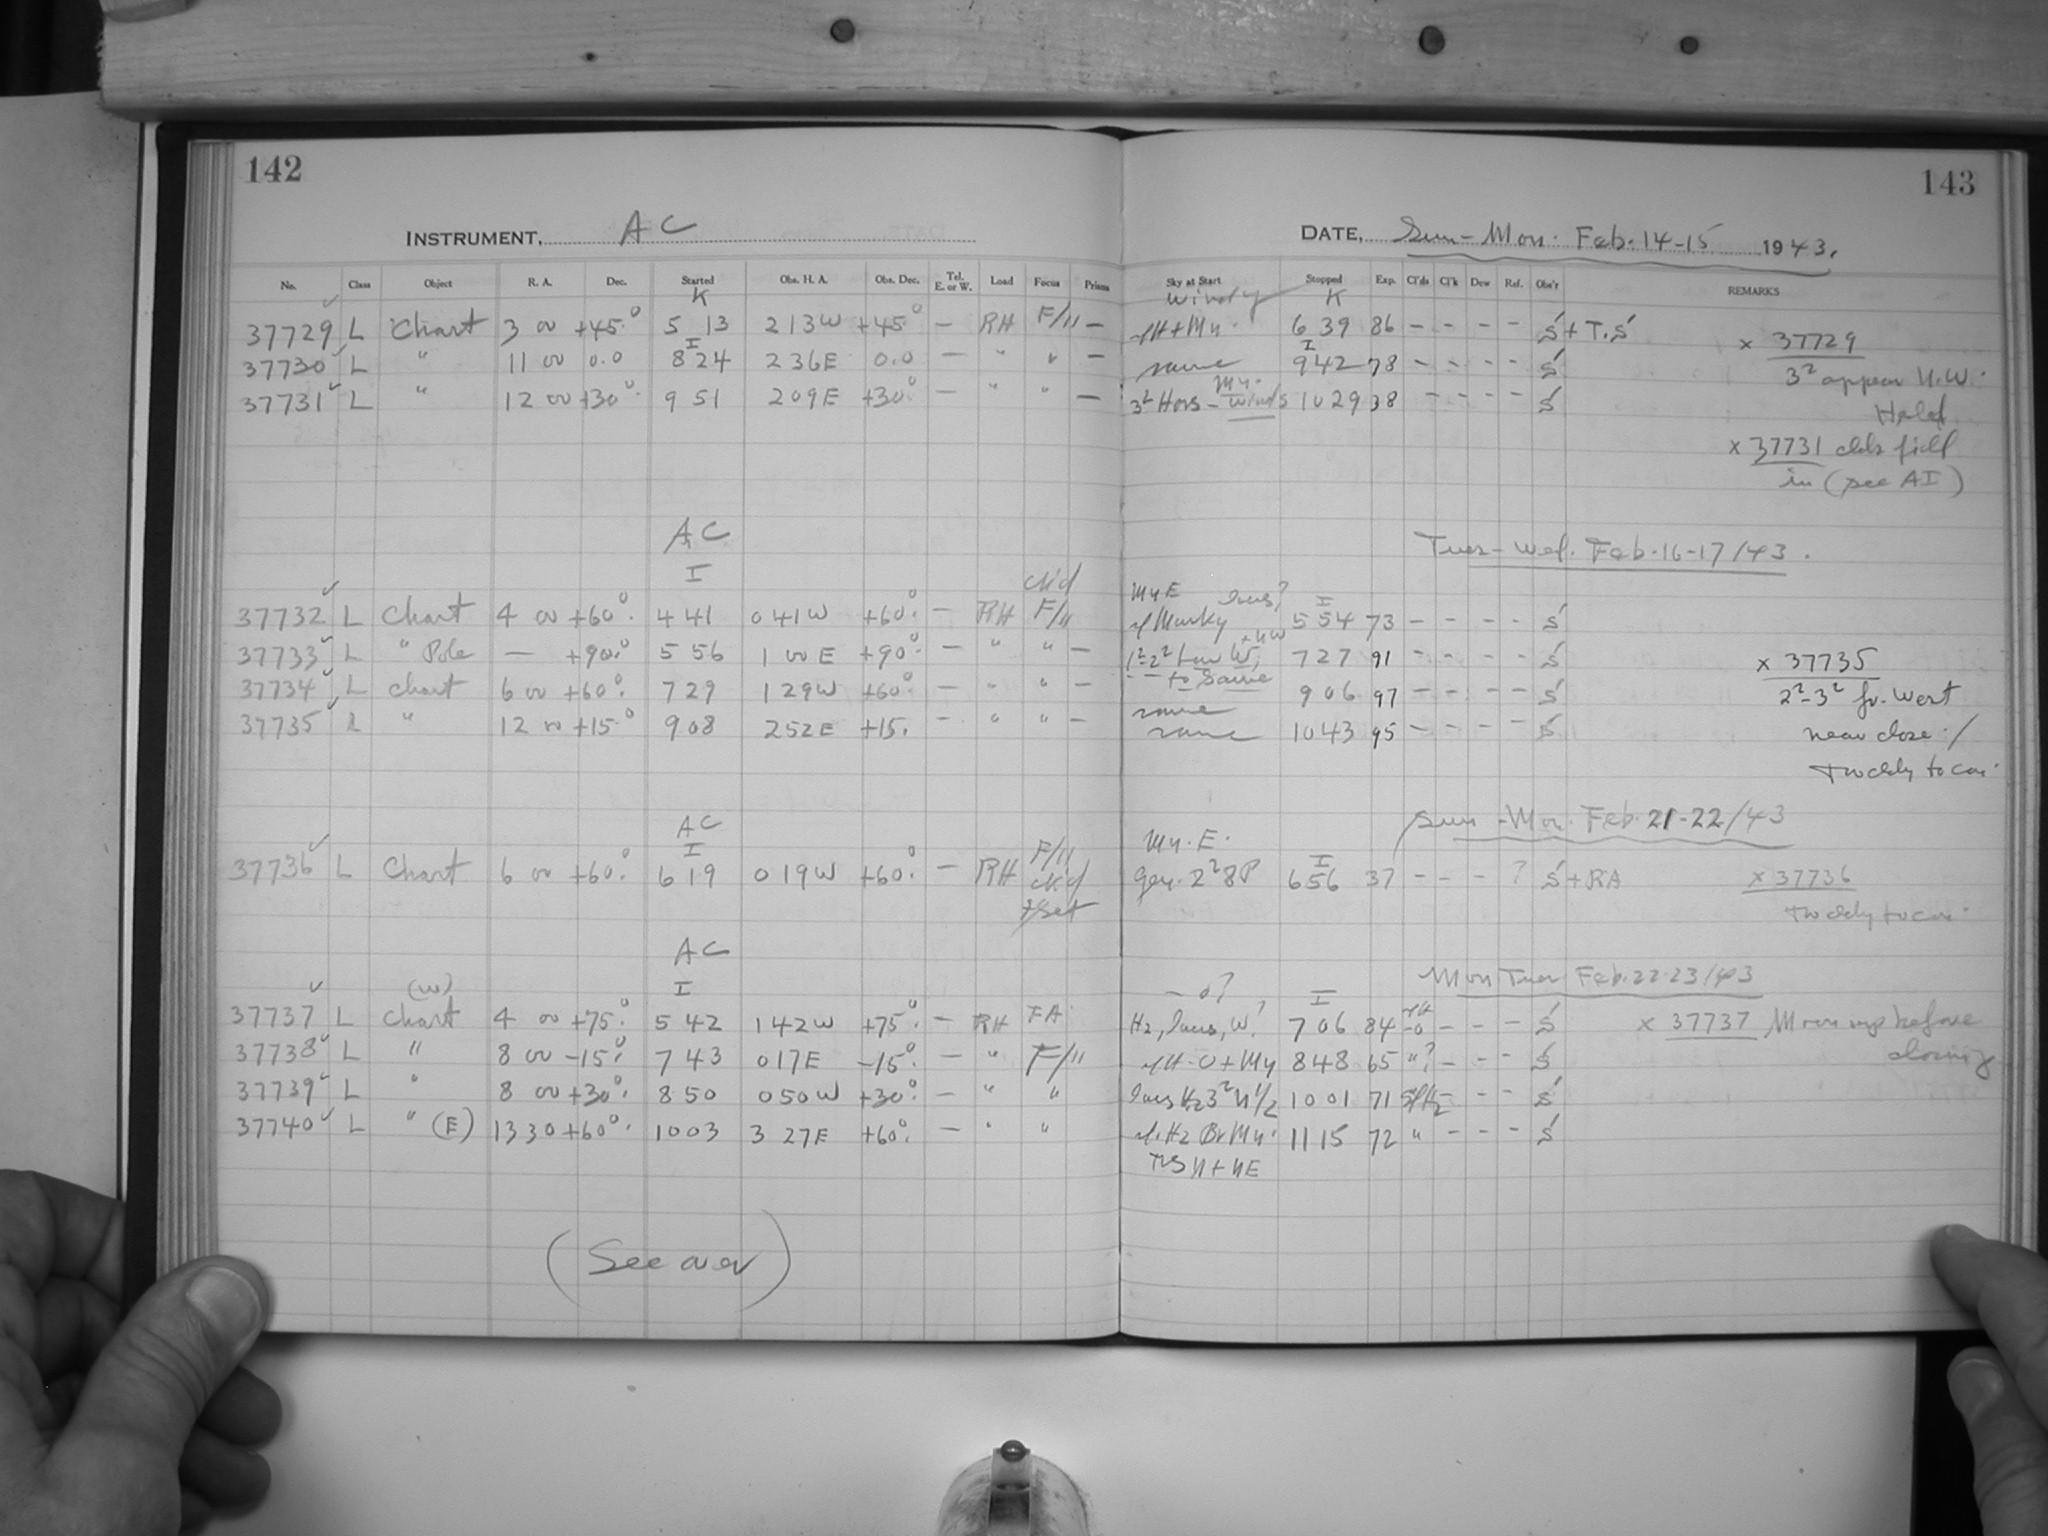 142
143
INSTRUMENT, AC
DATE, Sun-Mon. Feb. 14-15 1943.
No. Class Object R. A. Dec. Started Obs. H. A. Obs. Dec. Tel. E. or W. Load Focus Prisms Sky at Start Stopped Exp. Cl'ds Cl'k Dew Ref. Obs'r REMARKS
K Windy K
37729 L Chart 3 00 +45° 5 13 213W +45° - RH F/11 - 6 39 86 - - - - S + T.S × 37729
I I
37730 L " 11 00 0.0 8 24 236E 0.0 - " " - same 9 42 78 - - - - S 3² appear N.W.
37731 L " 12 00 +30° 9 51 209E +30° - " " - 3² Hors - winds 10 29 38 - - - - S
× 37731 field
in (see AI)
AC
Tues-Wed. Feb. 16-17/43.
I ck'd My E I
37732 L Chart 4 00 +60° 4 41 041W +60° - RH F/11 Murky 5 54 73 - - - - S
37733 L " Pole - +90° 5 56 1 00E +90° - " " - 1²-2² Low W, +NW 7 27 91 - - - - S × 37735
to same
37734 L Chart 6 00 +60° 7 29 129W +60° - " " - same 9 06 97 - - - - S 2²-3² fr. West
37735 L " 12 00 +15° 9 08 252E +15. - " " - same 10 43 95 - - - - S near close/
AC
Sun-Mon. Feb. 21-22/43
I F/11 My. E. I
37736 L Chart 6 00 +60° 6 19 019W +60° - RH ck'd 2² 8P 6 56 37 - - - ? S + RA × 37736
+set
AC
Mon Tues Feb. 22-23/43
(W) I I
37737 L Chart 4 00 +75° 5 42 142W +75° - RH FA Hz, W? 7 06 84 - - - S × 37737 Moon up before
37738 L " 8 00 -15° 7 43 017E -15° - " F/11 +My 8 48 65 "? - - - S closing
37739 L " 8 00 +30° 8 50 050W +30° - " " 10 01 71 - - - S
37740 L " (E) 13 30 +60° 10 03 3 27E +60° - " " Hz Br My. 11 15 72 " - - - S
N + NE
(See over)